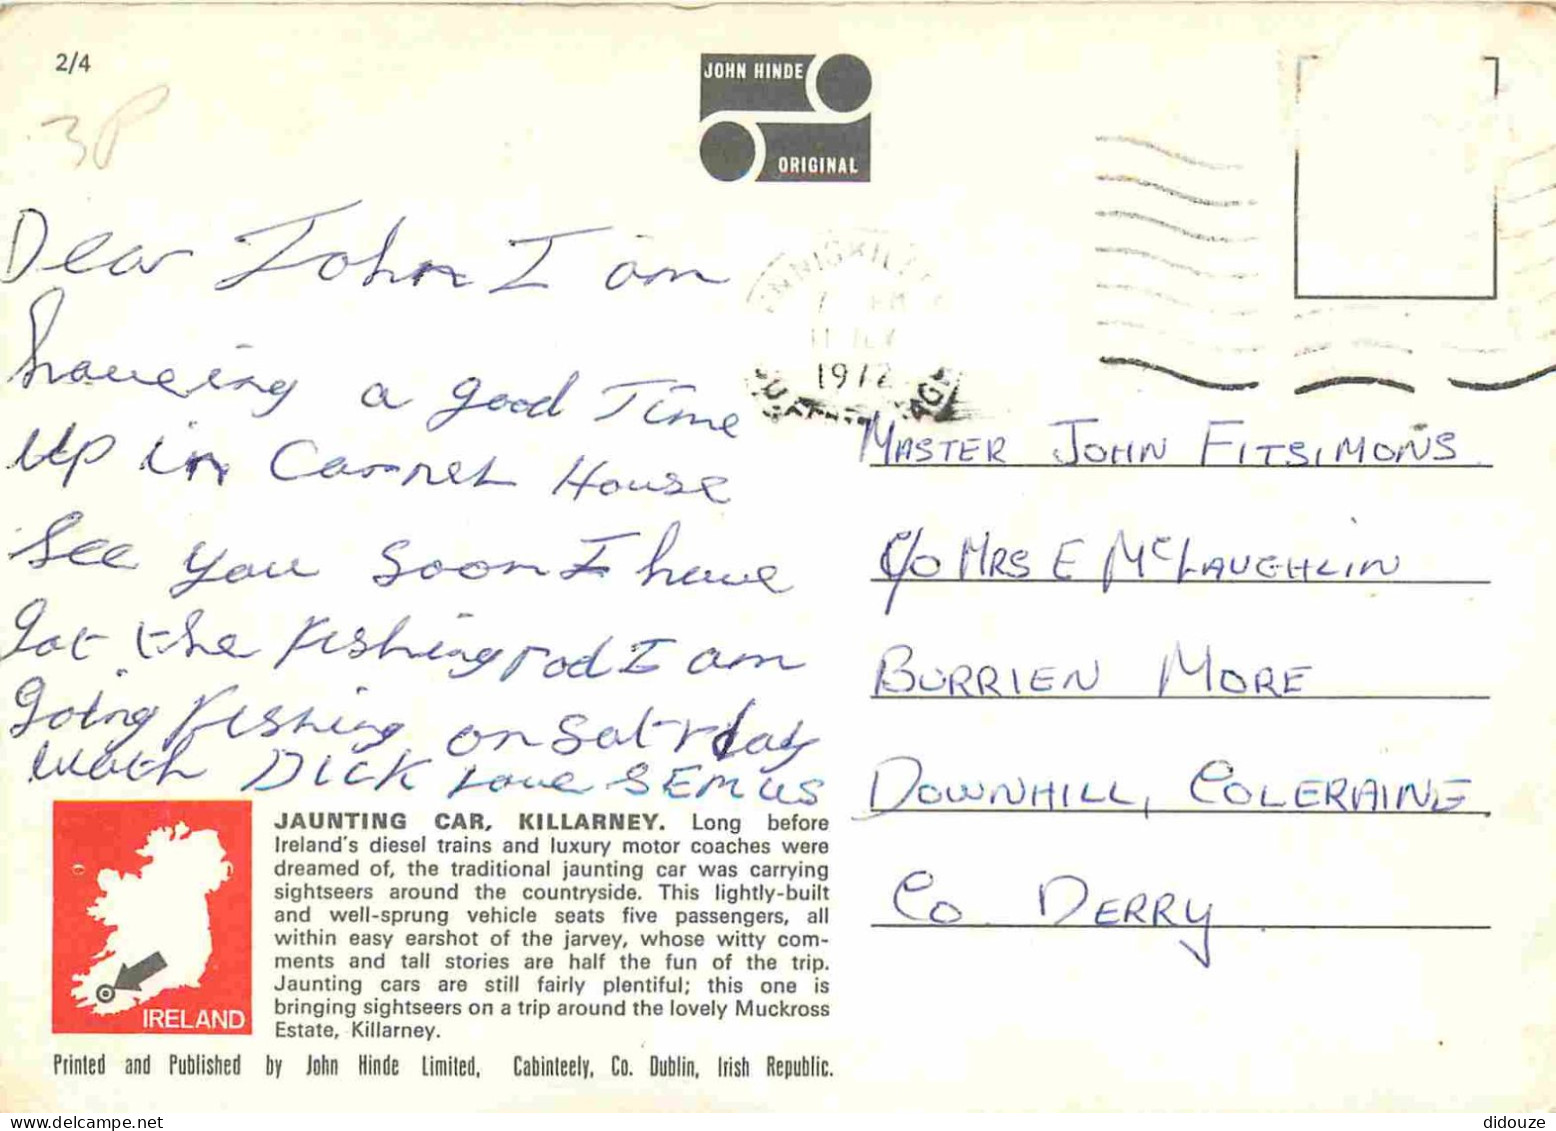 2/4
3P
JOHN HINDE
ORIGINAL
Dear John I am
haveing a good Time
up in Carnet House
See you soon I have
got the fishing rod I am
going fishing on Saturday
with DICK Love SEMUS
ENNISKILLEN
PM
1972
MASTER JOHN FITSIMONS
c/o MRS E McLAUGHLIN
BURRIEN MORE
DOWNHILL, COLERAINE
Co. DERRY.
JAUNTING CAR, KILLARNEY. Long before
Ireland's diesel trains and luxury motor coaches were
dreamed of, the traditional jaunting car was carrying
sightseers around the countryside. This lightly-built
and well-sprung vehicle seats five passengers, all
within easy earshot of the jarvey, whose witty com-
ments and tall stories are half the fun of the trip.
Jaunting cars are still fairly plentiful; this one is
bringing sightseers on a trip around the lovely Muckross
Estate, Killarney.
IRELAND
Printed and Published by John Hinde Limited, Cabinteely, Co. Dublin, Irish Republic.
didouze